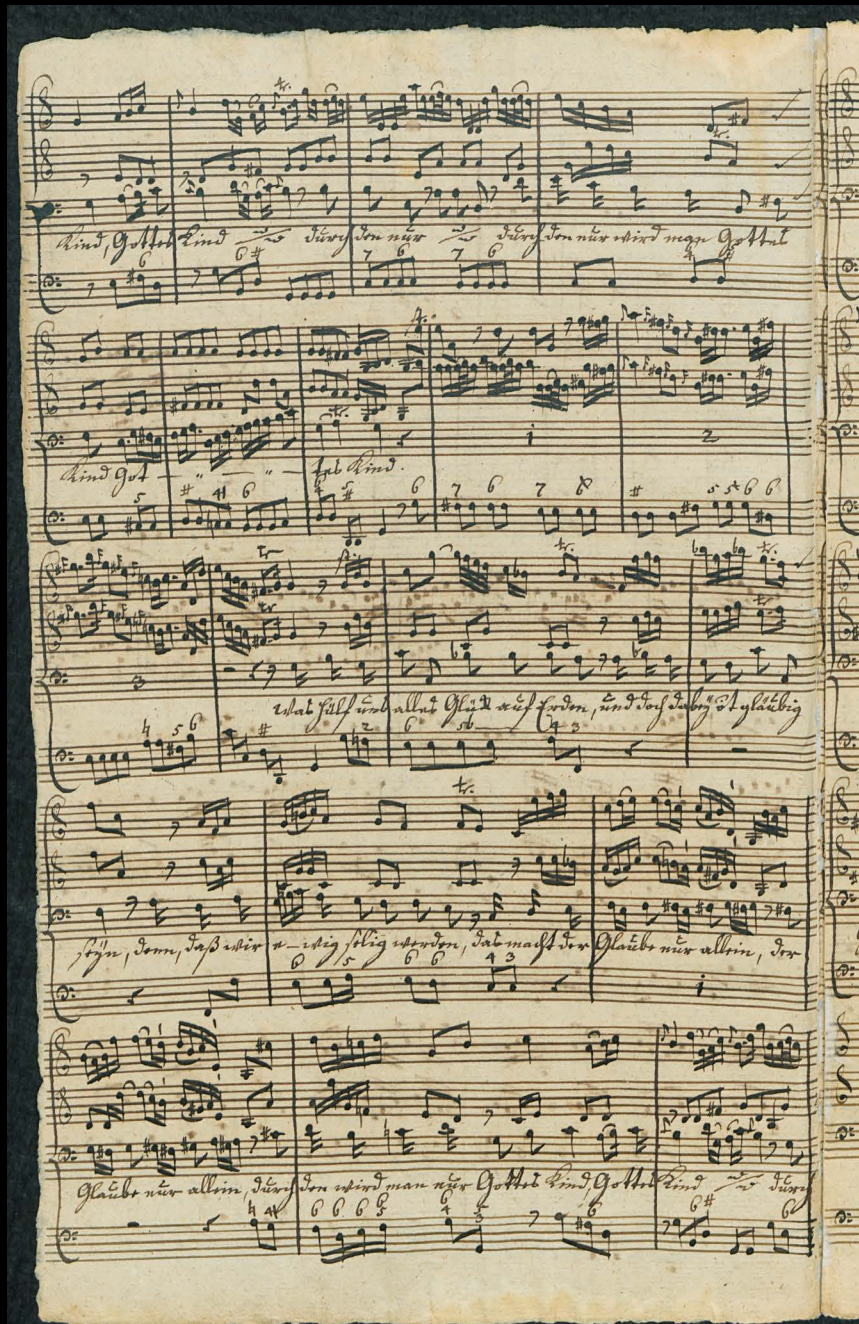 Kind, Gottes Kind durch den nur durch den nur wird man Gottes
Kind Got - " - " - tes Kind.
was hülf uns alles Glük auf Erden, und doch dabeÿ gläubig
seÿn, denn, daß wir e-wig selig werden, das macht der Glaube nur allein, der
Glaube nur allein, durch den wird man nur Gottes Kind, Gottes Kind durch